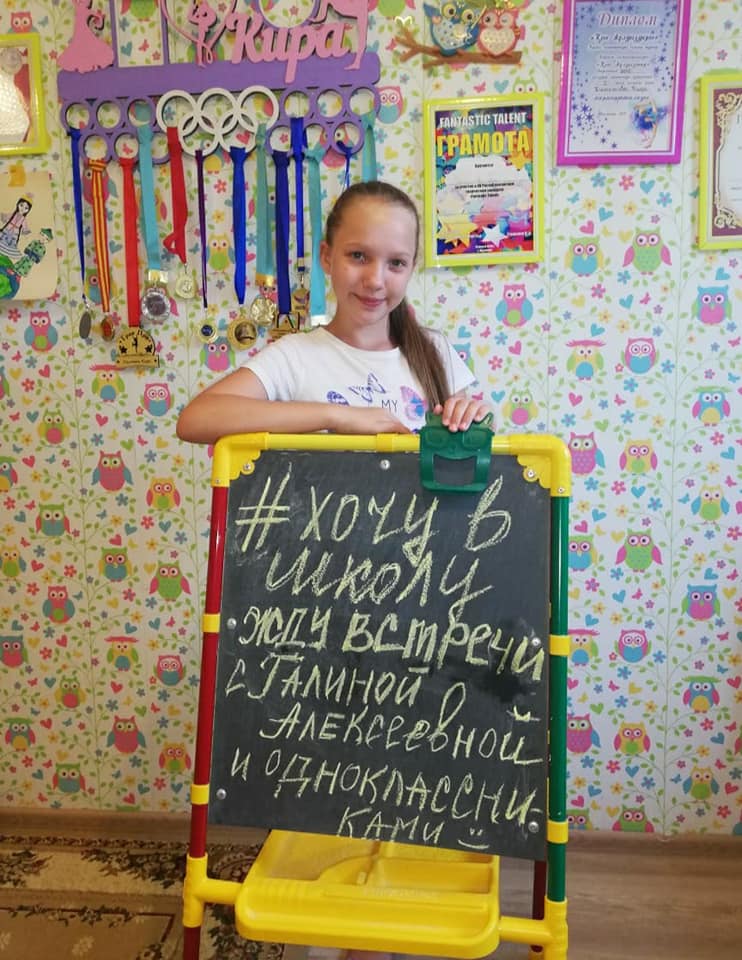 Кира
Диплом
FANTASTIC TALENT
ГРАМОТА
MY
#ХОЧУ В
ШКОЛУ
ЖДУ ВСТРЕЧИ
С ГАЛИНОЙ
АЛЕКСЕЕВНОЙ
И ОДНОКЛАССНИ-
КАМИ